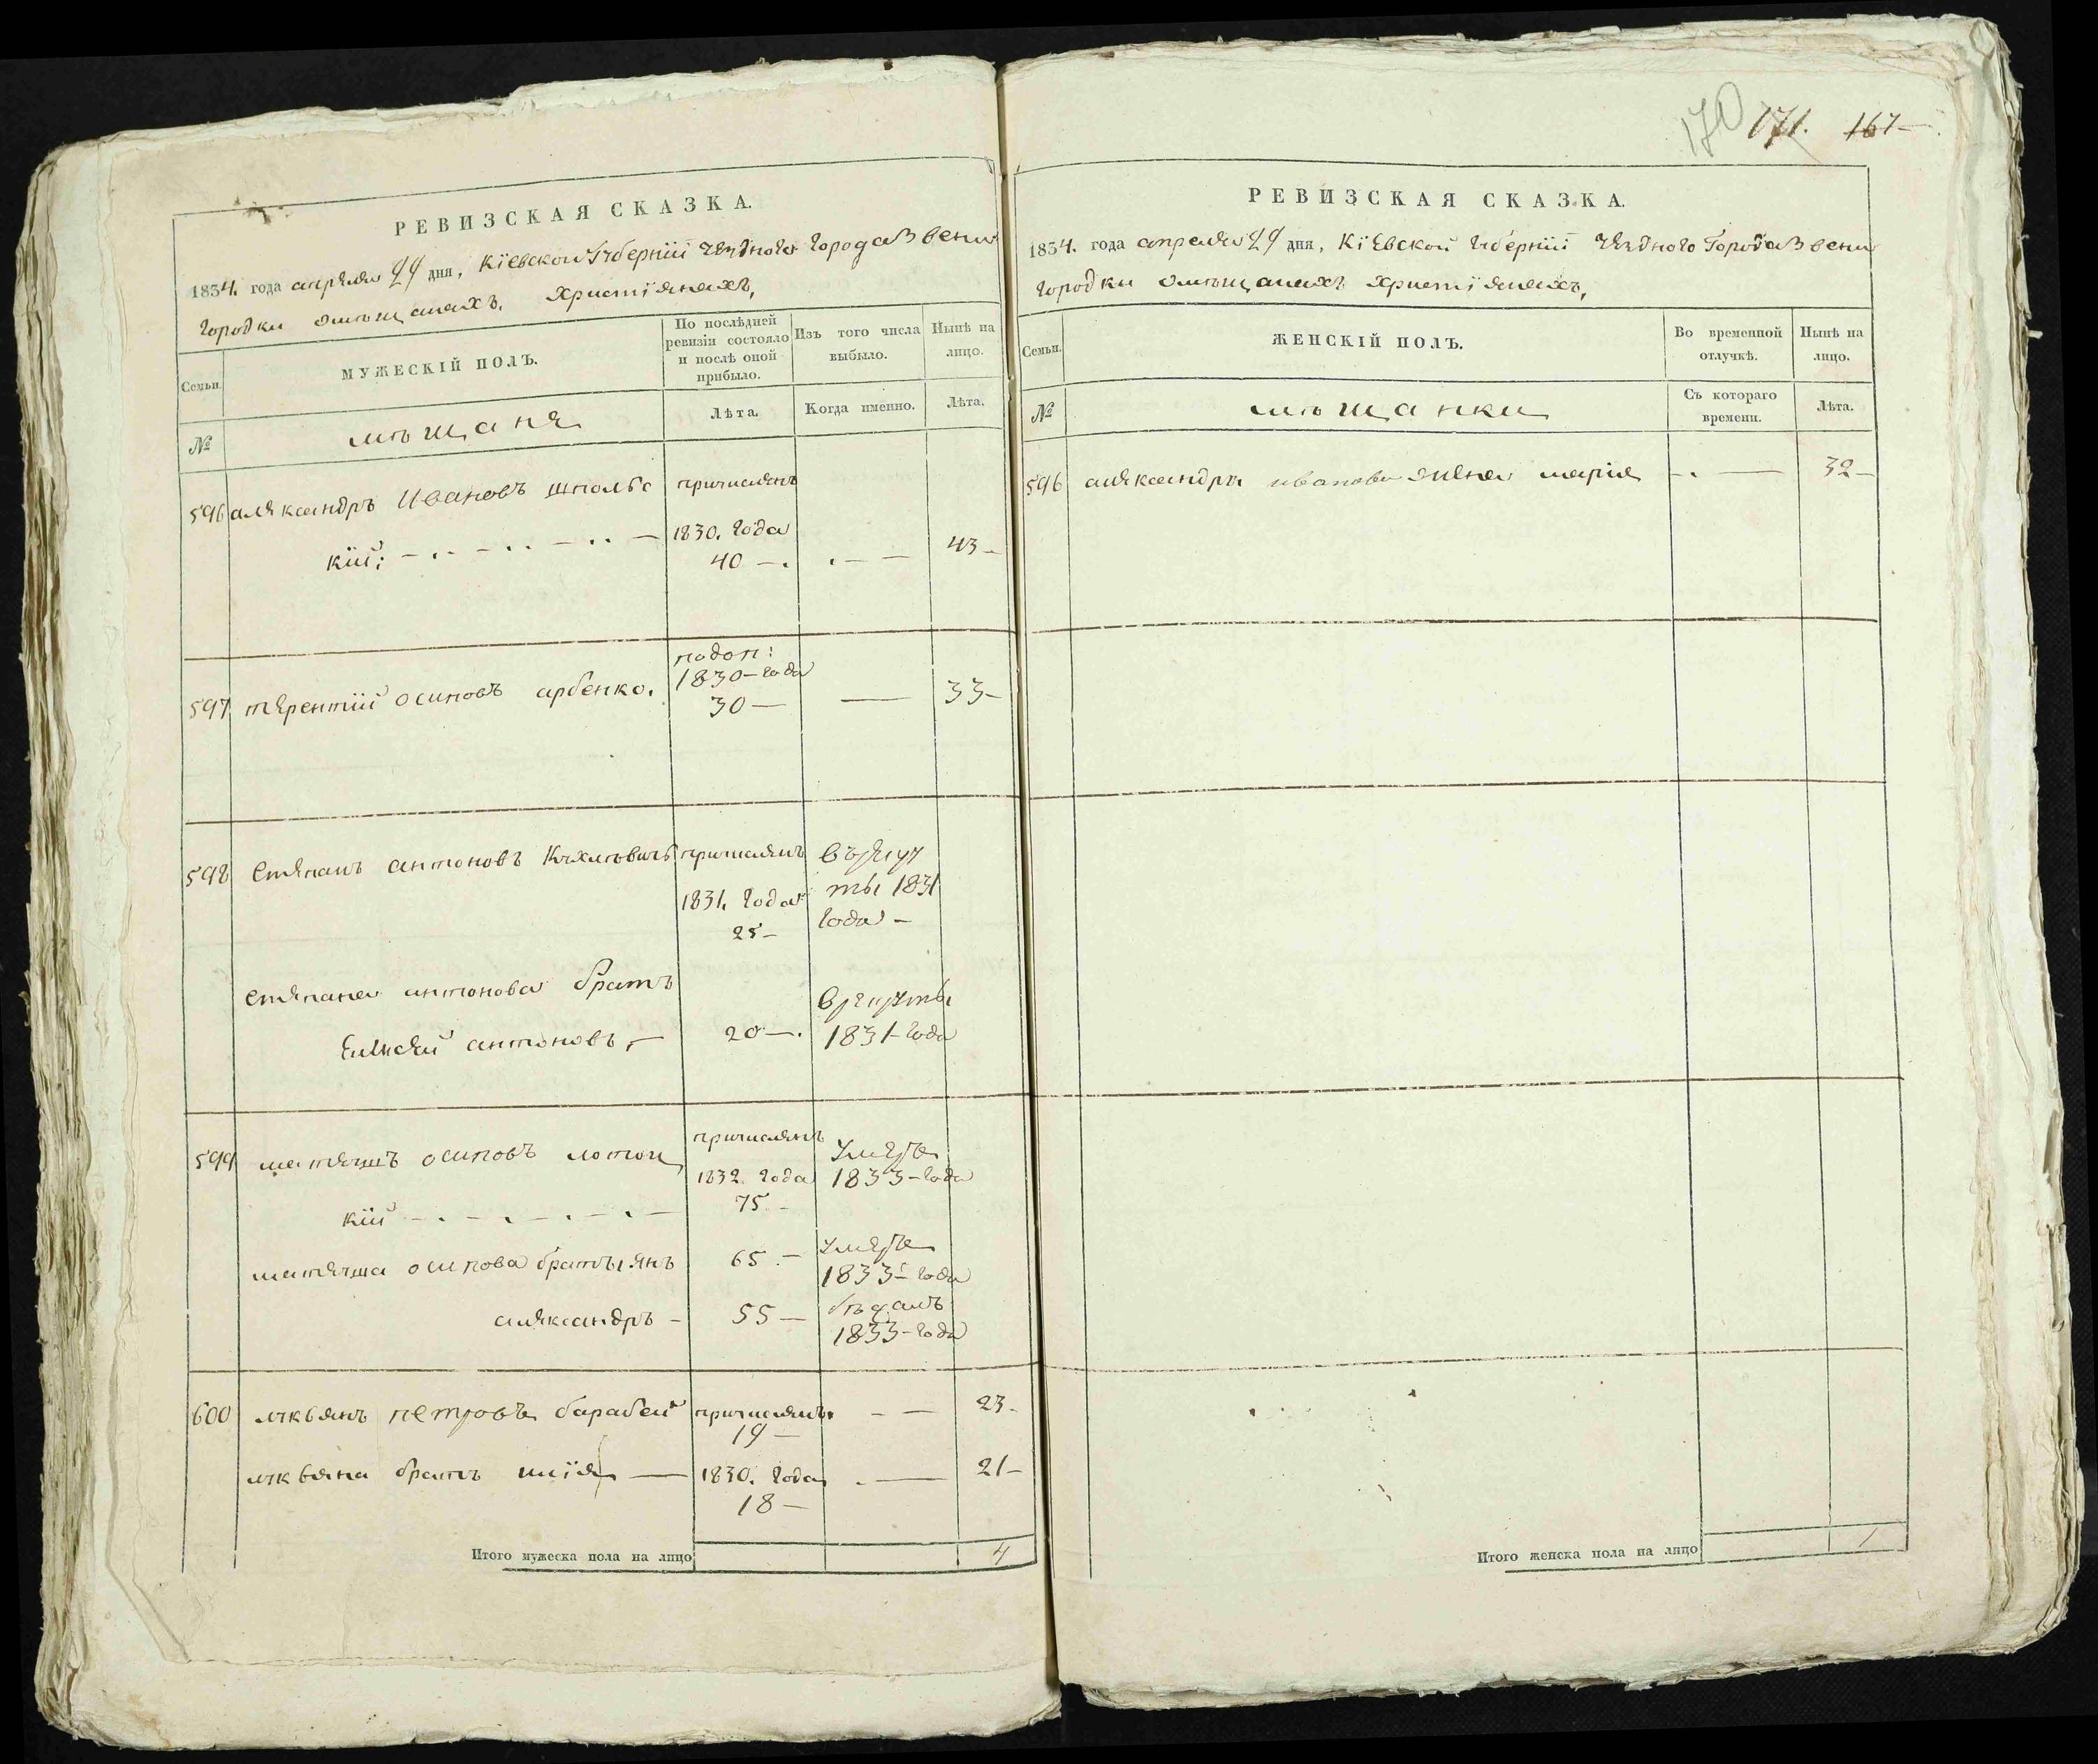 РЕВИЗСКАЯ СКАЗКА.
1834. года апреля 24 дня, Кіевской Губерніи уезднаго города Звени
городки омѣщанахъ, христіянахъ,
Семьи.
МУЖЕСКІЙ ПОЛЪ.
По послѣдней ревизіи состояло и послѣ оной прибыло.
Изъ того числа выбыло.
Нынѣ на лицо.
№
мѣщаня
Лѣта.
Когда именно.
Лѣта.
596 александръ Ивановъ шполѣс причисленъ
кій: 1830. года
40 —. . — — 43 —
597 терентій осиповъ арбенко. подоп:
1830 — года
30 — — 33 —
598 степанъ антоновъ причисленъ
1831. года ты 1831
25 — года —
степана антонова братъ
антоновъ, — 20 —. 1831 — года
599 осиповъ лотоц причисленъ умере
1832. года 1833 — года
кій 75 —
осипова братья: янъ 65. — умере
1833 — года
александръ — 55 — бѣжалъ
1833 — года
600 лукьянъ петровъ барабей причисленъ — — 23 —
19 —
лукьяна братъ илія — 1830. года . — 21 —
18 —
Итого мужеска пола на лицо 4
170 171. 167 —
РЕВИЗСКАЯ СКАЗКА.
1834. года апреля 24 дня, Кіевской Губерніи уезднаго Города Звени
городки омѣщанахъ христіянахъ,
Семьи.
ЖЕНСКІЙ ПОЛЪ.
Во временной отлучкѣ.
Нынѣ на лицо.
№
мѣщанки
Съ котораго времени.
Лѣта.
596 александра иванова жена марія — . — 32 —
Итого женска пола на лицо 1